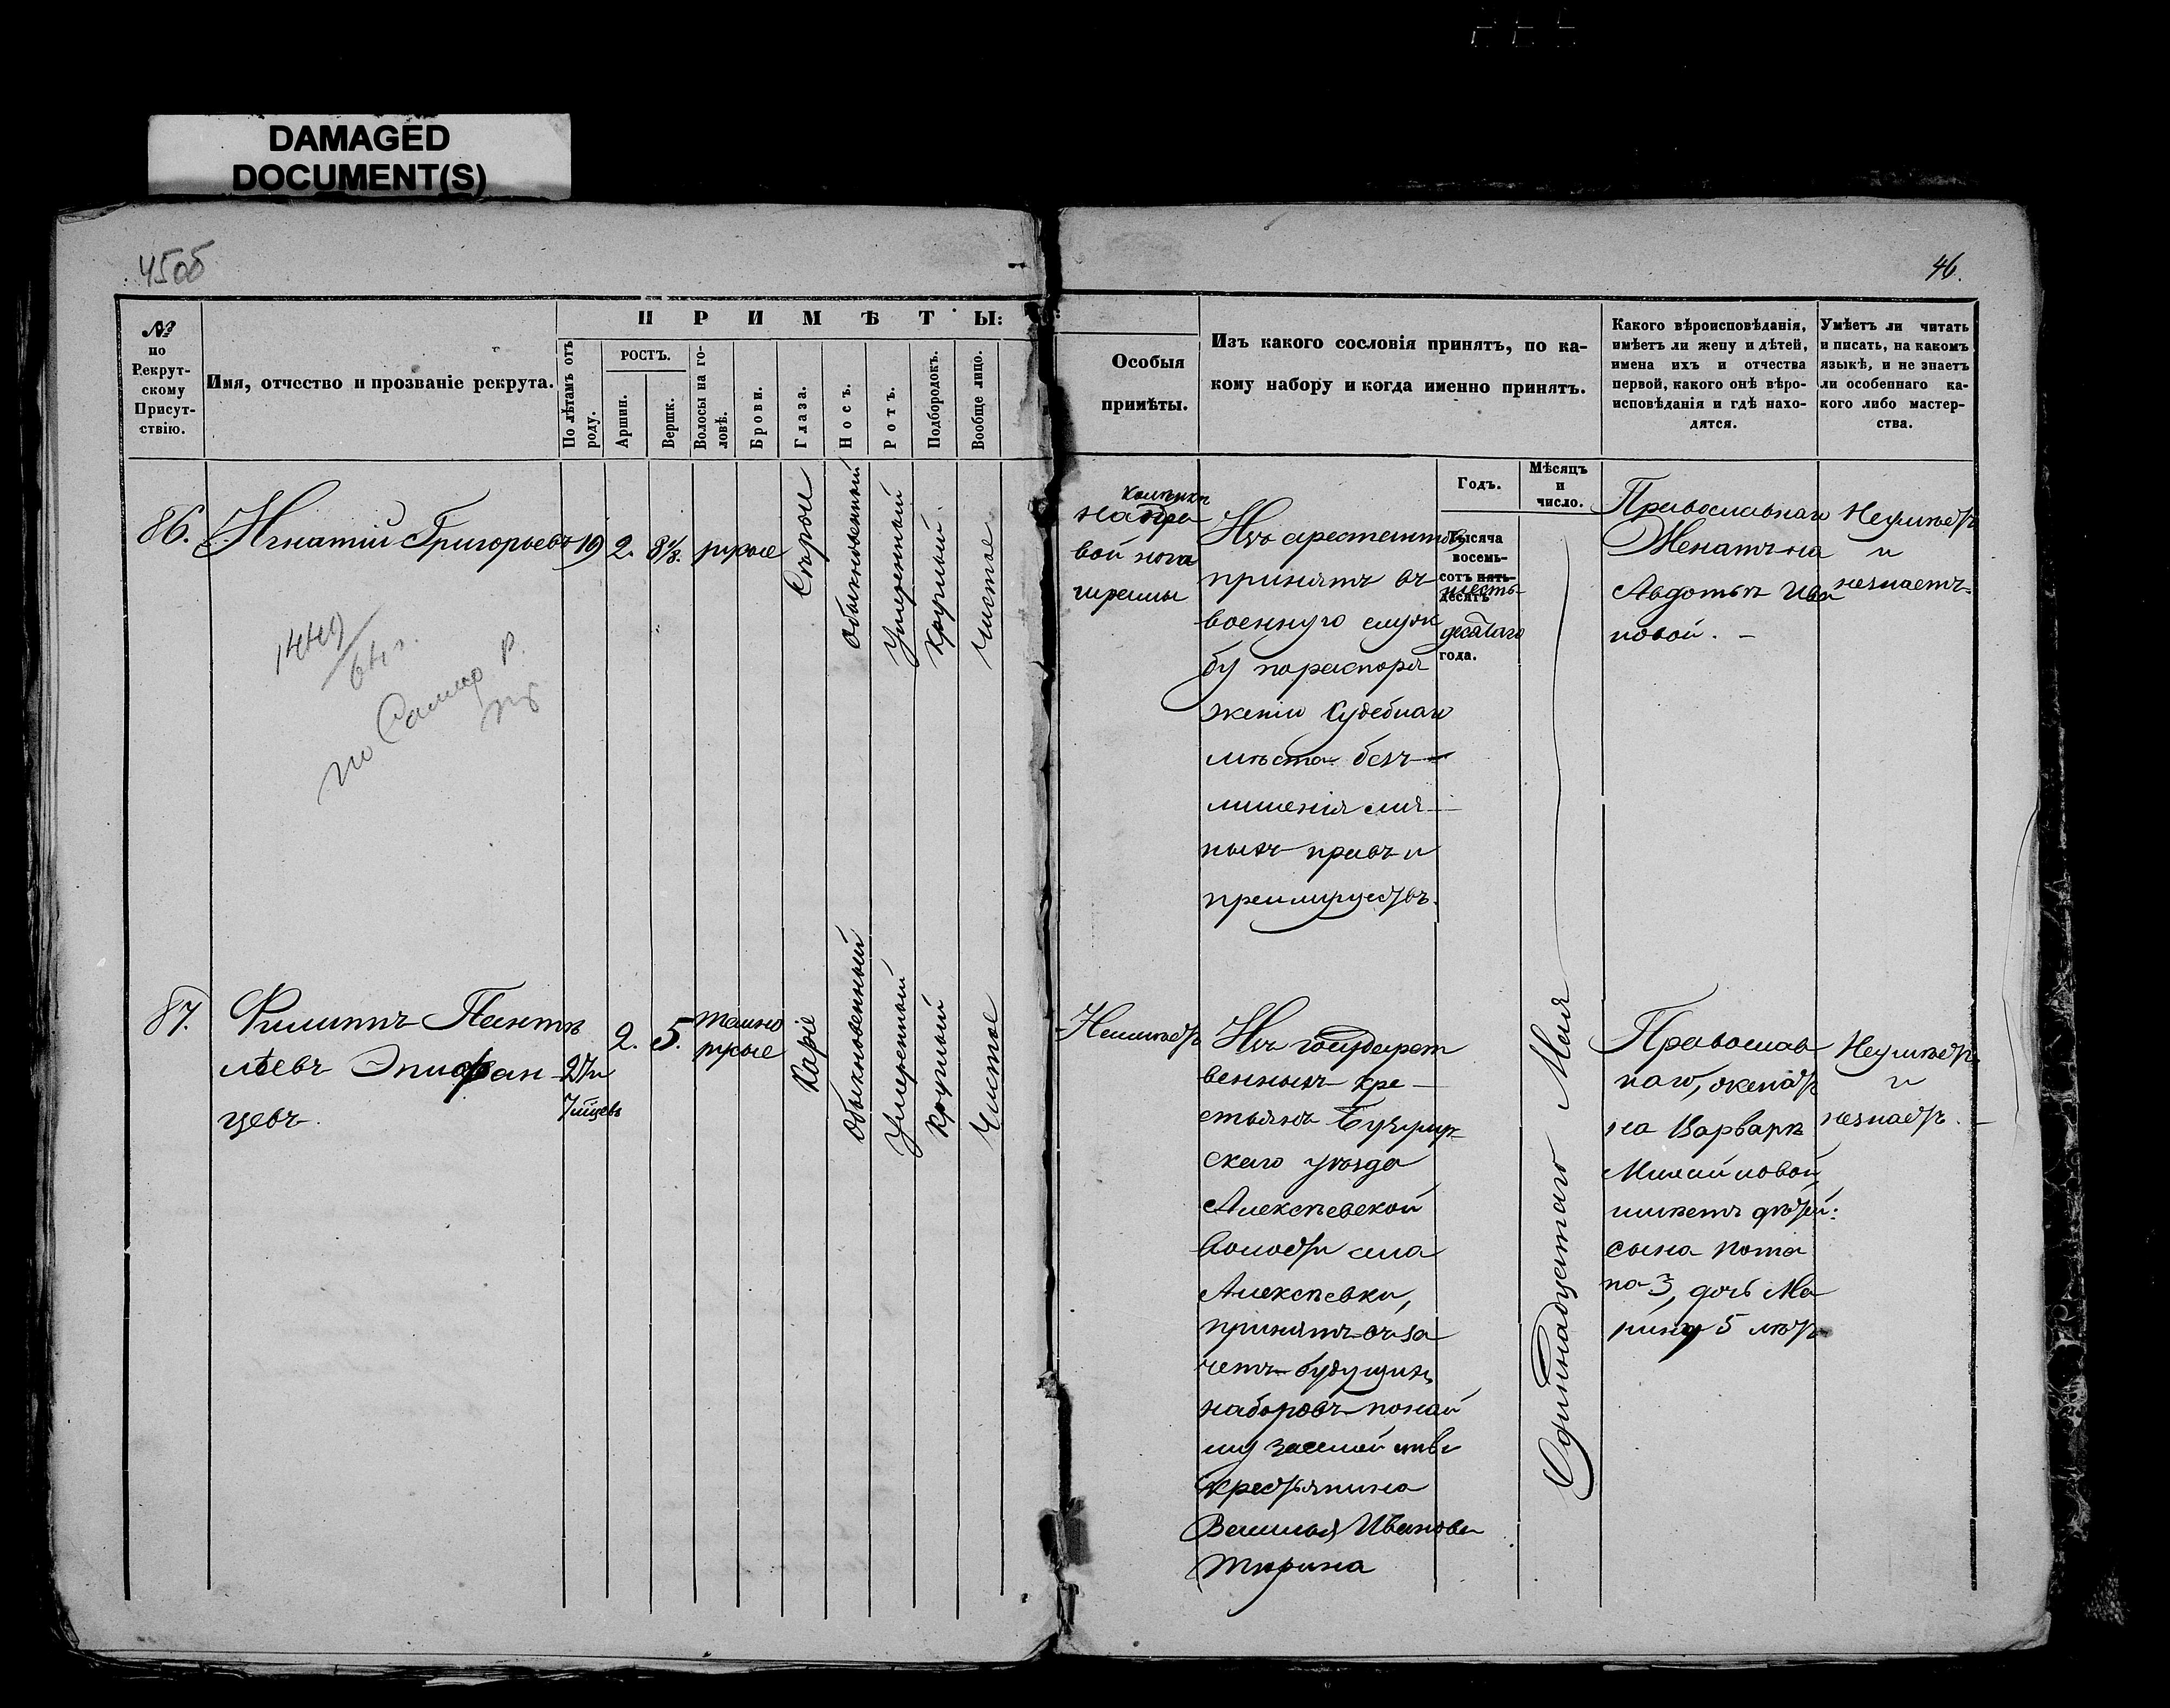 DAMAGED
DOCUMENT(S)
45об
46.
№
по
Рекрут-
скому
Присут-
ствію.
Имя, отчество и прозваніе рекрута.
ПРИМѢТЫ:
По лѣтамъ отъ
роду.
РОСТЪ.
Аршин.
Вершк.
Волосы на го-
ловѣ.
Брови.
Глаза.
Носъ.
Ротъ.
Подбородокъ.
Вообще лицо.
Особыя
примѣты.
Изъ какого сословія принятъ, по ка-
кому набору и когда именно принятъ.
Какого вѣроисповѣданія,
имѣетъ ли жену и дѣтей,
имена ихъ и отчества
первой, какого онѣ вѣро-
исповѣданія и гдѣ нахо-
дятся.
Умѣетъ ли читать
и писать, на какомъ
языкѣ, и не знаетъ
ли особеннаго ка-
кого либо мастер-
ства.
Годъ.
Мѣсяцъ
и
число.
86.
Игнатій Григорьевъ
19
2.
8 1/8.
русые
Сѣрые
Обыкновенный
Умеренный
Круглый
Чистое
на пра
вой нога
шрамы
Изъ арестантовъ
принятъ въ
военную служ
бу по распоря
женію Судебнаго
мѣста безъ
лишенія лич
ныхъ правъ и
преимуществъ.
Тысяча
восемь-
сотъ пять-
десятъ
шесть-
десятаго
года.
Православнаго
Женатъ на
Авдотьѣ Ива
новой. –
Неумѣетъ
и
незнаетъ.
1449
64 г.
по Самар
87.
Филиппъ Пантѣ
лѣевъ Эпифан
цевъ.
27 и
7 мцевъ
2.
5.
темно
русые
Каріе
Обыкновенный
Умеренный
Круглый
Чистое
Неимѣетъ
Изъ государст
венныхъ кре
стьянъ Бузулук
скаго уѣзда
Алексѣевской
волости села
Алексѣевки,
принятъ въ за
четъ будущихъ
наборовъ по най
му за семейство
крестьянина
Василья Иванова
Тюрина
Одинадцатаго Мая
Православ
наго, женатъ
на Варварѣ
Михайловой,
имѣетъ дѣтей:
сына Пота
па 3, дочь Ма
рину 5 лѣтъ
Неумѣетъ
и
незнаетъ.